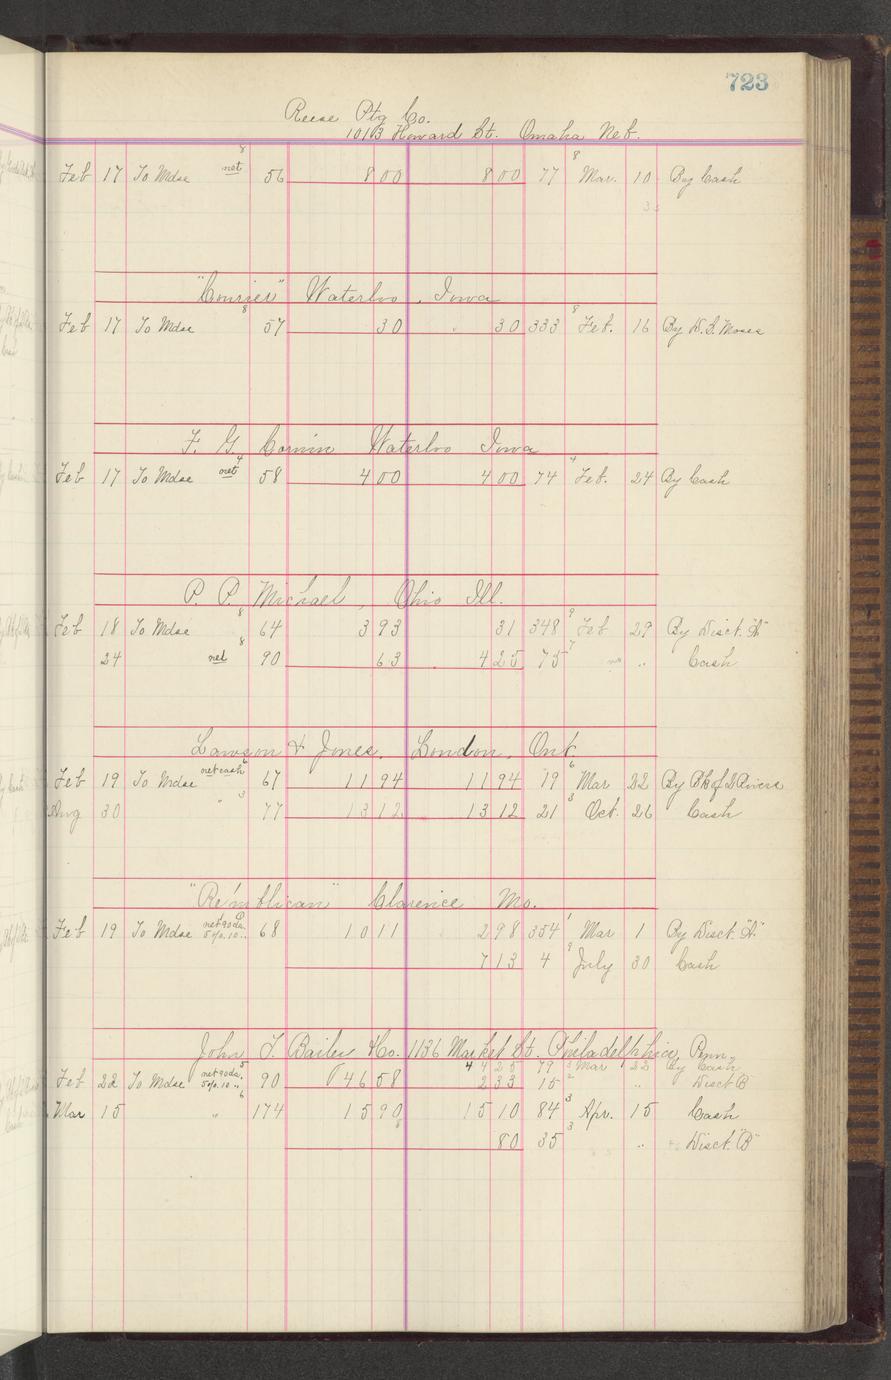 723
Reese Ptg Co.
1011 3 Howard St. Omaha Neb.
8 8
Feb 17 To Mdse net 56 8 00 8 00 77 Mar. 10 By Cash
35
"Courier" Waterloo, Iowa
8 8
Feb 17 To Mdse 57 30 30 333 Feb. 16 By W. S. Moses
F. G. Corwin Waterloo Iowa
4 4
Feb 17 To Mdse net 58 4 00 4 00 74 Feb. 24 By Cash
P. P. Michael, Ohio Ill.
8 9
Feb 18 To Mdse 64 3 93 31 348 Feb 29 By Disct. "A"
8 7
24 net 90 63 4 25 75 " .. Cash
Lawson & Jones, London, Ont
6 6
Feb 19 To Mdse net cash 67 11 94 11 94 79 Mar 22 By Bk of
3 3
Aug 30 " 77 13 12 13 12 21 Oct. 26 Cash
"Republican" Clarence Mo.
net 90 da. 1
Feb 19 To Mdse 5% 10 .. 68 10 11 2 98 354 Mar 1 By Disct. "A"
9
7 13 4 July 30 Cash
John T. Bailey & Co. 1136 Market St. Philadelphia, Penn.
5 44 25 79 3 Mar 22 By Cash
net 90 da.
Feb 22 To Mdse 5% 10 .. 90 46 58 2 33 15 2 .. Disct B
6 3
Mar 15 " 174 15 90 15 10 84 Apr. 15 Cash
8 3
80 35 .. Disct. "B"